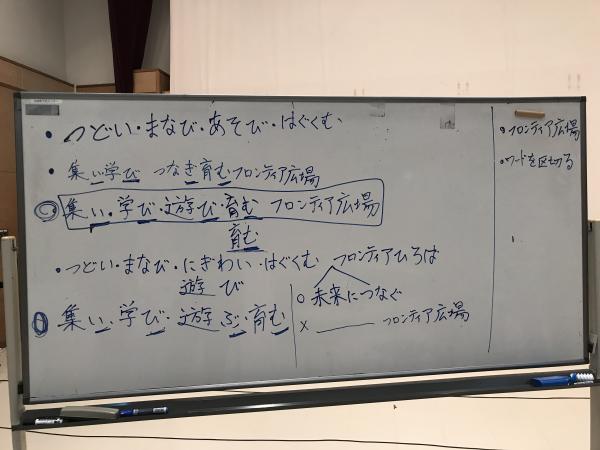 ・つどい・まなび・あそび・はぐくむ
・集い学び つなぎ育むフロンティア広場
◎集い・学び・遊び・育む フロンティア広場
育む
・つどい・まなび・にぎわい・はぐくむ フロンティアひろば
遊び
集い・学び・遊ぶ・育む
○未来につなぐ
×＿＿＿フロンティア広場
・フロンティア広場
・ワードを区切る